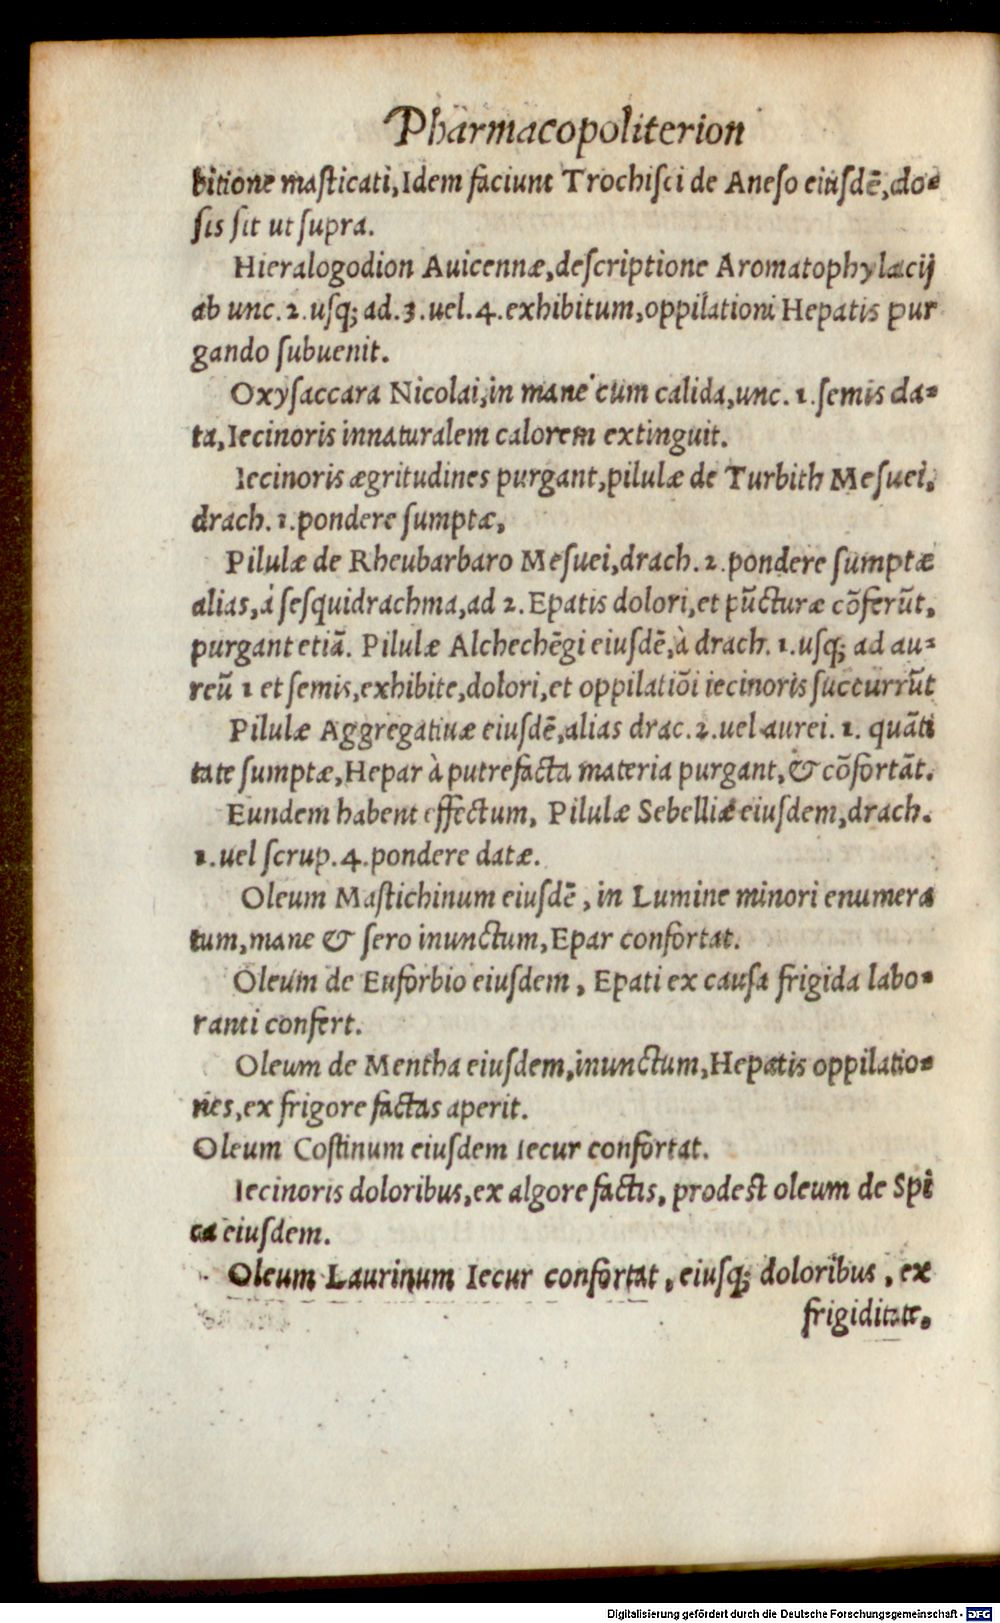 Pharmacopoliterion
bitione masticati, Idem faciunt Trochiſci de Aneſo eiuſdē, do-
ſis ſit ut ſupra.
Hieralogodion Auicennæ, deſcriptione Aromatophylacij
ab unc. 2. uſq; ad. 3. uel. 4. exhibitum, oppilationi Hepatis pur
gando ſubuenit.
Oxyſaccara Nicolai, in mane cum calida, unc. 1. ſemis da-
ta, Iecinoris innaturalem calorem extinguit.
Iecinoris ægritudines purgant, pilulæ de Turbith Meſuei,
drach. 1. pondere ſumptæ,
Pilulæ de Rheubarbaro Meſuei, drach. 2. pondere ſumptæ
alias, à ſeſquidrachma, ad 2. Epatis dolori, et pūcturæ cōferūt,
purgant etiā. Pilulæ Alchechēgi eiuſdē, à drach. 1. uſq; ad au-
reū 1 et ſemis, exhibite, dolori, et oppilatiōi iecinoris ſuccurrūt
Pilulæ Aggregatiuæ eiuſdē, alias drac. 2. uel aurei. 1. quāti
tate ſumptæ, Hepar à putrefacta materia purgant, & cōfortāt.
Eundem habent effectum, Pilulæ Sebelliæ eiuſdem, drach.
1. uel ſcrup. 4. pondere datæ.
Oleum Maſtichinum eiuſdē, in Lumine minori enumera
tum, mane & ſero inunctum, Epar confortat.
Oleum de Euforbio eiuſdem, Epati ex cauſa frigida labo-
ranti confert.
Oleum de Mentha eiuſdem, inunctum, Hepatis oppilatio-
nes, ex frigore factas aperit.
Oleum Coſtinum eiuſdem Iecur confortat.
Iecinoris doloribus, ex algore factis, prodeſt oleum de Spi
ca eiuſdem.
Oleum Laurinum Iecur confortat, eiuſq; doloribus, ex
frigiditate.
Digitalisierung gefördert durch die Deutsche Forschungsgemeinschaft - DFG